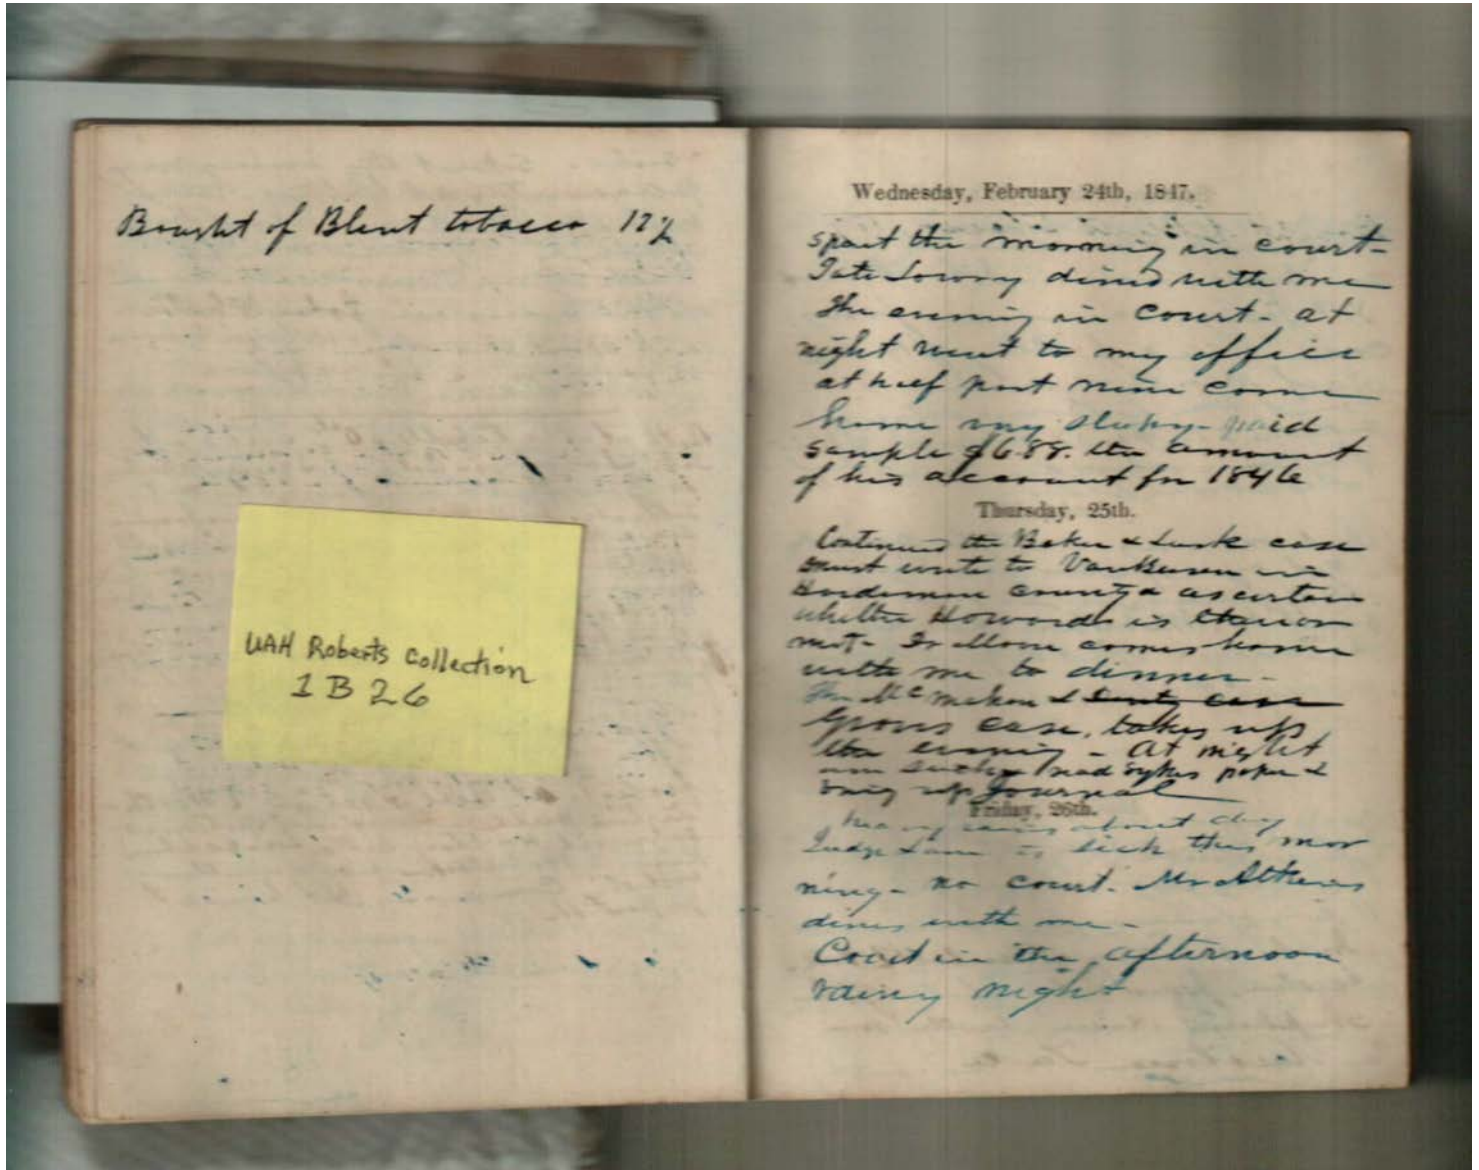 Bought of Blunt tobacco 12½
UAH Roberts Collection
1B26
Wednesday, February 24th, 1847.
spent the morning in court-
Tate Lowry dined with me
the evening in court- at
night went to my office
at half past nine came
home very sleepy- paid
Sample $6.88. the amount
of his account for 1846
Thursday, 25th.
Continued the Baker & Lusk case
must write to VanBuren in
Hardeman County & ascertain
whether Howard is there or
not- Dr Moore comes home
with me to dinner-
The McMahon &
Groves case, takes up
the evening - At night
read Sykes paper &
bring up Journal
Friday, 26th.
heavy rains about day
Judge Lane is sick this mor
ning- no court. Mr
dines with me-
Court in the afternoon
rainy night